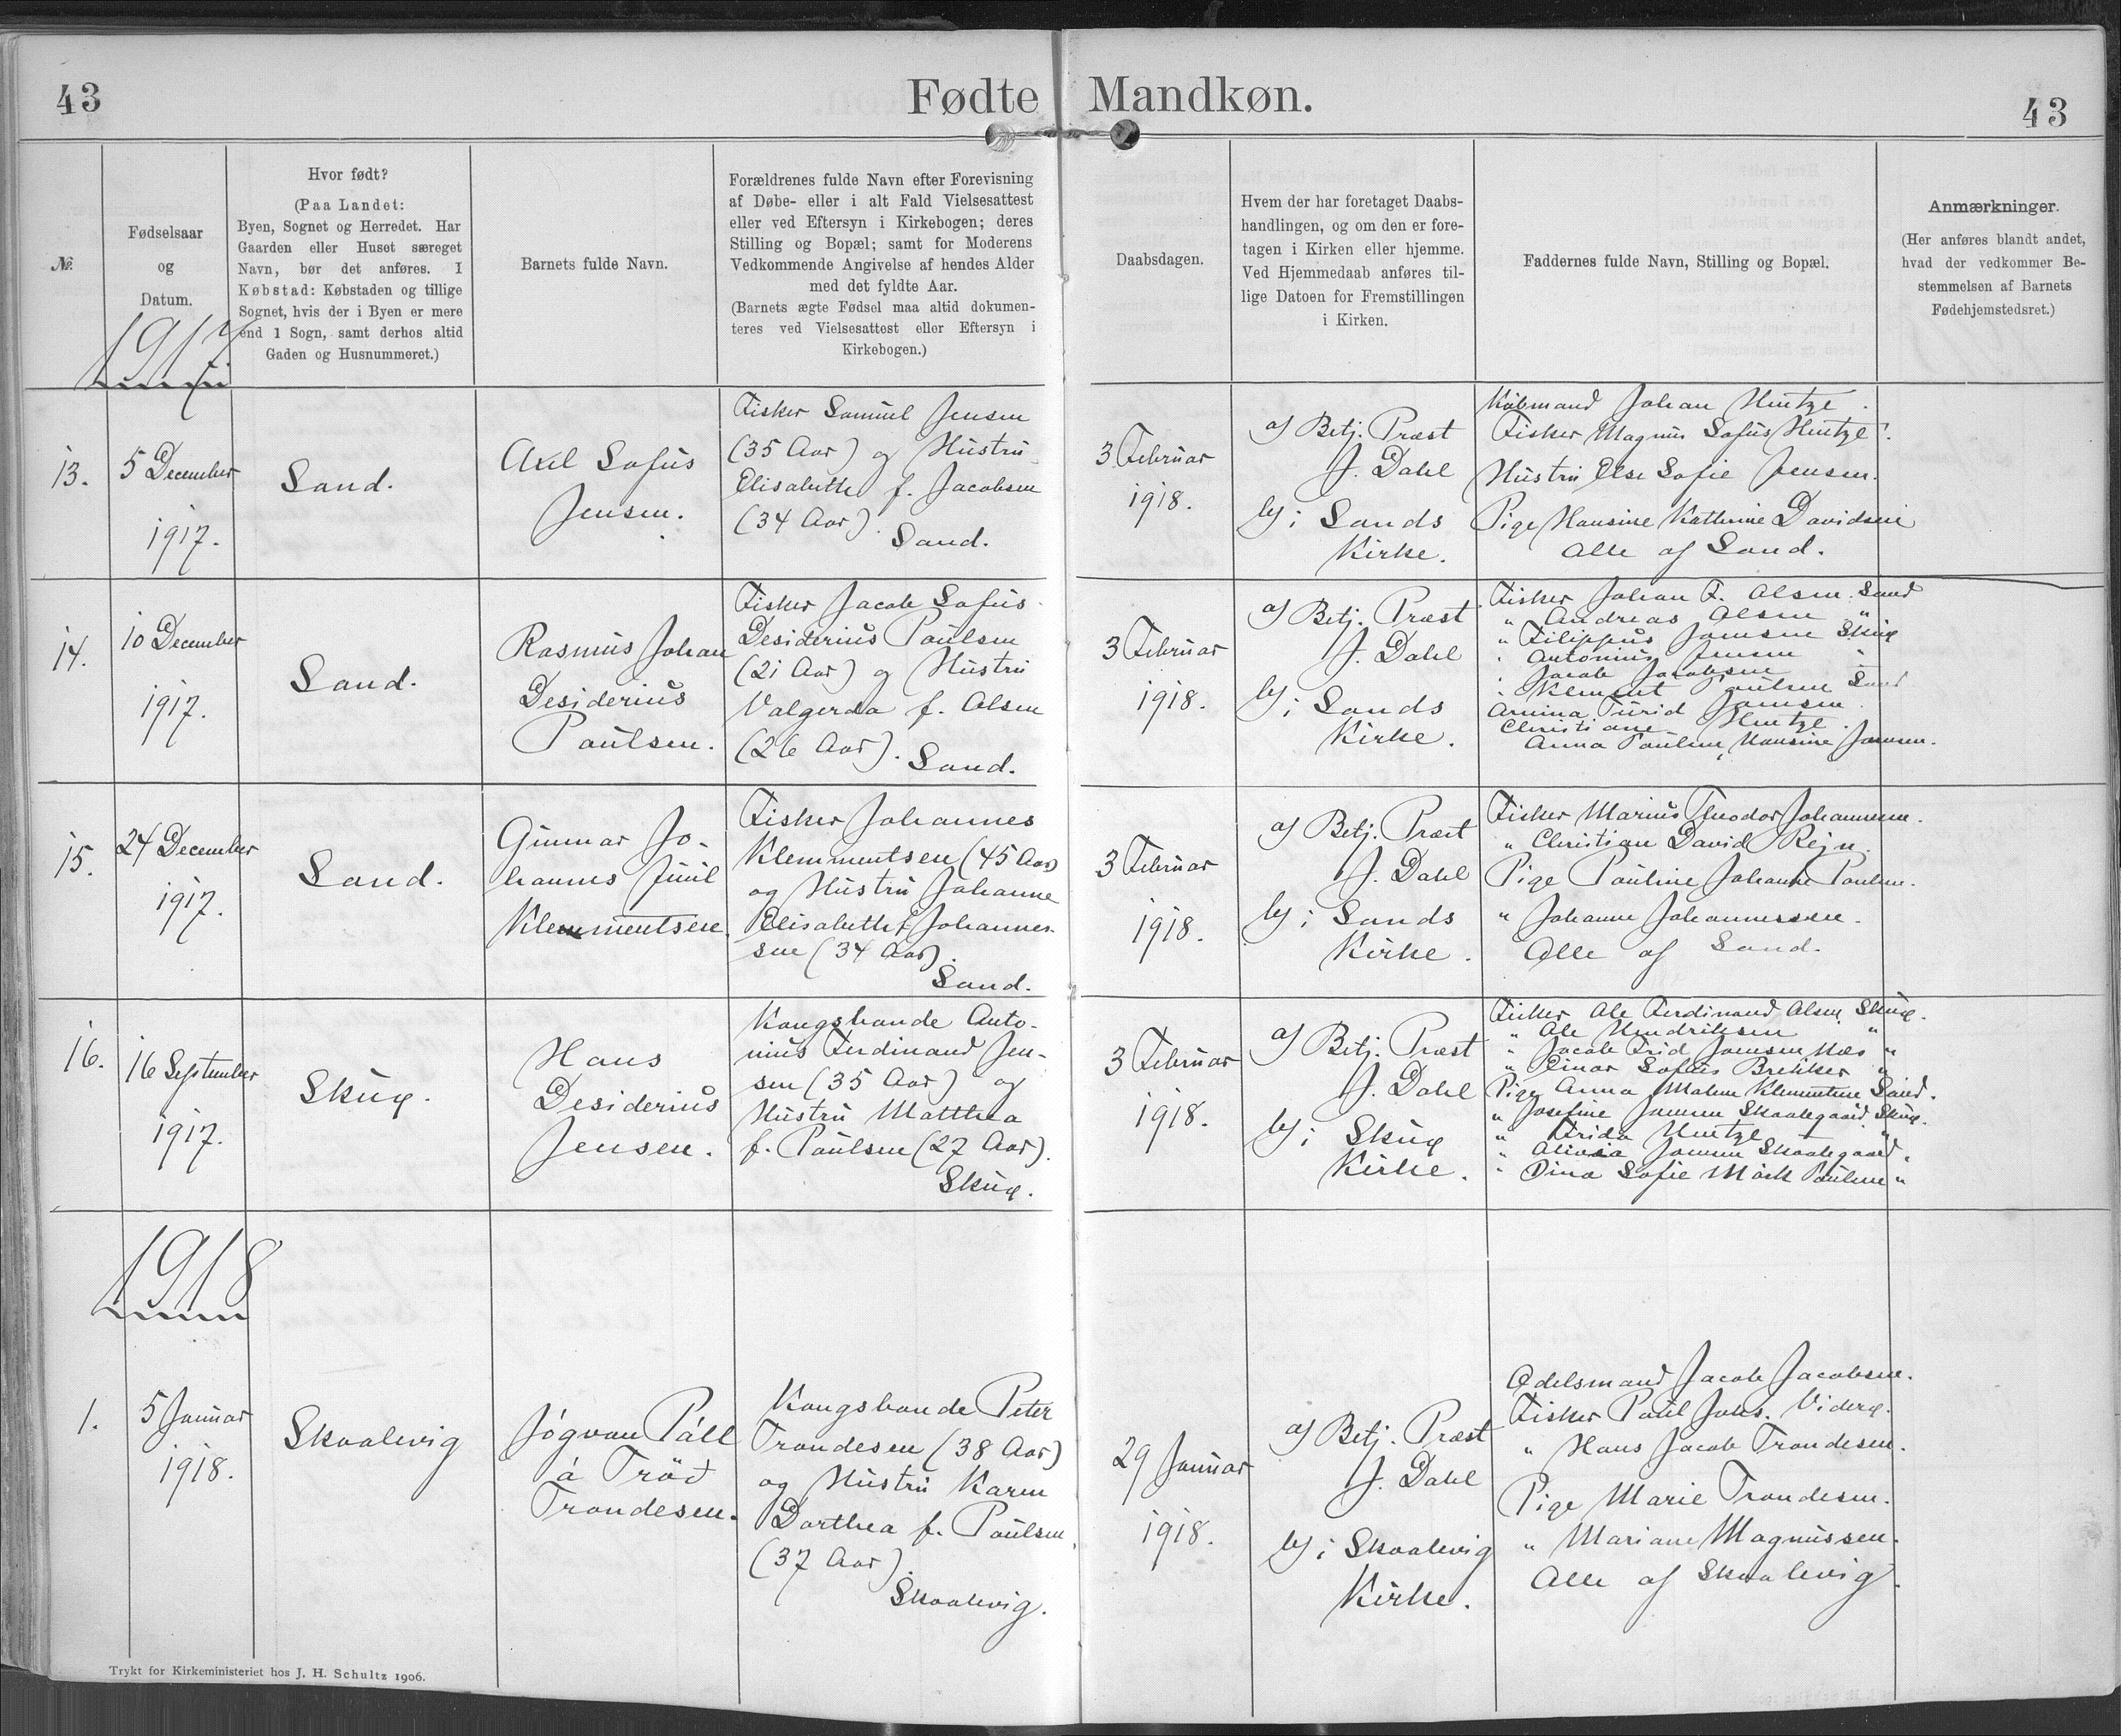 43
Fødte Mandkøn.
43
№.
Fødselsaar
og
Datum.
Hvor født?
(Paa Landet:
Byen, Sognet og Herredet. Har
Gaarden eller Huset særeget
Navn, bør det anføres. I
Købstad: Købstaden og tillige
Sognet, hvis der i Byen er mere
end 1 Sogn, samt derhos altid
Gaden og Husnummeret.)
Barnets fulde Navn.
Forældrenes fulde Navn efter Forevisning
af Døbe- eller i alt Fald Vielsesattest
eller ved Eftersyn i Kirkebogen; deres
Stilling og Bopæl; samt for Moderens
Vedkommende Angivelse af hendes Alder
med det fyldte Aar.
(Barnets ægte Fødsel maa altid dokumen-
teres ved Vielsesattest eller Eftersyn i
Kirkebogen.)
Daabsdagen.
Hvem der har foretaget Daabs-
handlingen, og om den er fore-
tagen i Kirken eller hjemme.
Ved Hjemmedaab anføres til-
lige Datoen for Fremstillingen
i Kirken.
Faddernes fulde Navn, Stilling og Bopæl.
Anmærkninger.
(Her anføres blandt andet,
hvad der vedkommer Be-
stemmelsen af Barnets
Fødehjemstedsret.)
1917
13.
5 December
1917.
Sand.
Axel Sofus
Jensen.
Fisker Samuel Jensen
(35 Aar) og Hustru
Elisabeth f. Jacobsen
(34 Aar).
Sand.
3 Februar
1918.
af Betj. Præst
J. Dahl
i Sands
Kirke.
Købmand Johan Hentze.
Fisker Magnus Sofus Hentze.
Hustru Else Sofie Jensen.
Pige Hansine Kathrine Davidsen
Alle af Sand.
14.
10 December
1917.
Sand.
Rasmus Johan
Desiderius
Paulsen.
Fisker Jacob Sofus
Desiderius Paulsen
(21 Aar) og Hustru
Valgerda f. Olsen
(26 Aar).
Sand.
3 Februar
1918.
af Betj. Præst
J. Dahl
i Sands
Kirke.
Fisker Johan F. Olsen. Sand
" Andreas Olsen "
" Filippus Joensen Skuø
" Antonius Jensen "
" Jacob Jacobsen
" Klement Paulsen Sand
Turid Joensen
Christiane Hentze.
Anna Pauline Hansine Joensen.
15.
24 December
1917.
Sand.
Gunnar Jo-
hannes Juul
Klemmentsen.
Fisker Johannes
Klemmentsen (45 Aar)
og Hustru Johanne
Elisabeth f. Johannes-
sen (34 Aar).
Sand.
3 Februar
1918.
af Betj. Præst
J. Dahl
i Sands
Kirke.
Fisker Marius Theodor Johannesen.
" Christian David Rejn.
Pige Pauline Johanne Paulsen.
" Johanne Johannessen.
Alle af Sand.
16.
16 September
1917.
Skuø.
Hans
Desiderius
Jensen.
Kongsbonde Anto-
nius Ferdinand Jen-
sen (35 Aar) og
Hustru Matthea
f. Paulsen (27 Aar).
Skuø.
3 Februar
1918.
af Betj. Præst
J. Dahl
i Skuø
Kirke.
Fisker Ole Ferdinand Olsen Skuø.
" Ole Hendriksen "
" Jacob Frid Joensen "
" Einar Sofus Brekker "
Pige Anna Malene Klementsen Sand.
" Josefine Joensen Skaalegaard Skuø.
" Frida Hentze "
" Olivia Joensen Skaalegaard "
" Dina Sofie Mørk Paulsen "
1918
1.
5 Januar
1918.
Skaalevig
Jógvan Páll
á Trøð
Trondesen.
Kongsbonde Peter
Trondesen (38 Aar)
og Hustru Karen
Dorthea f. Poulsen
(37 Aar).
Skaalevig.
29 Januar
1918.
af Betj. Præst
J. Dahl
i Skaalevig
Kirke.
Odelsmand Jacob Jacobsen.
Fisker Poul Johs. Viderø.
" Hans Jacob Trondesen.
Pige Marie Trondesen.
" Mariane Magnussen.
Alle af Skaalevig.
Trykt for Kirkeministeriet hos J. H. Schultz 1906.